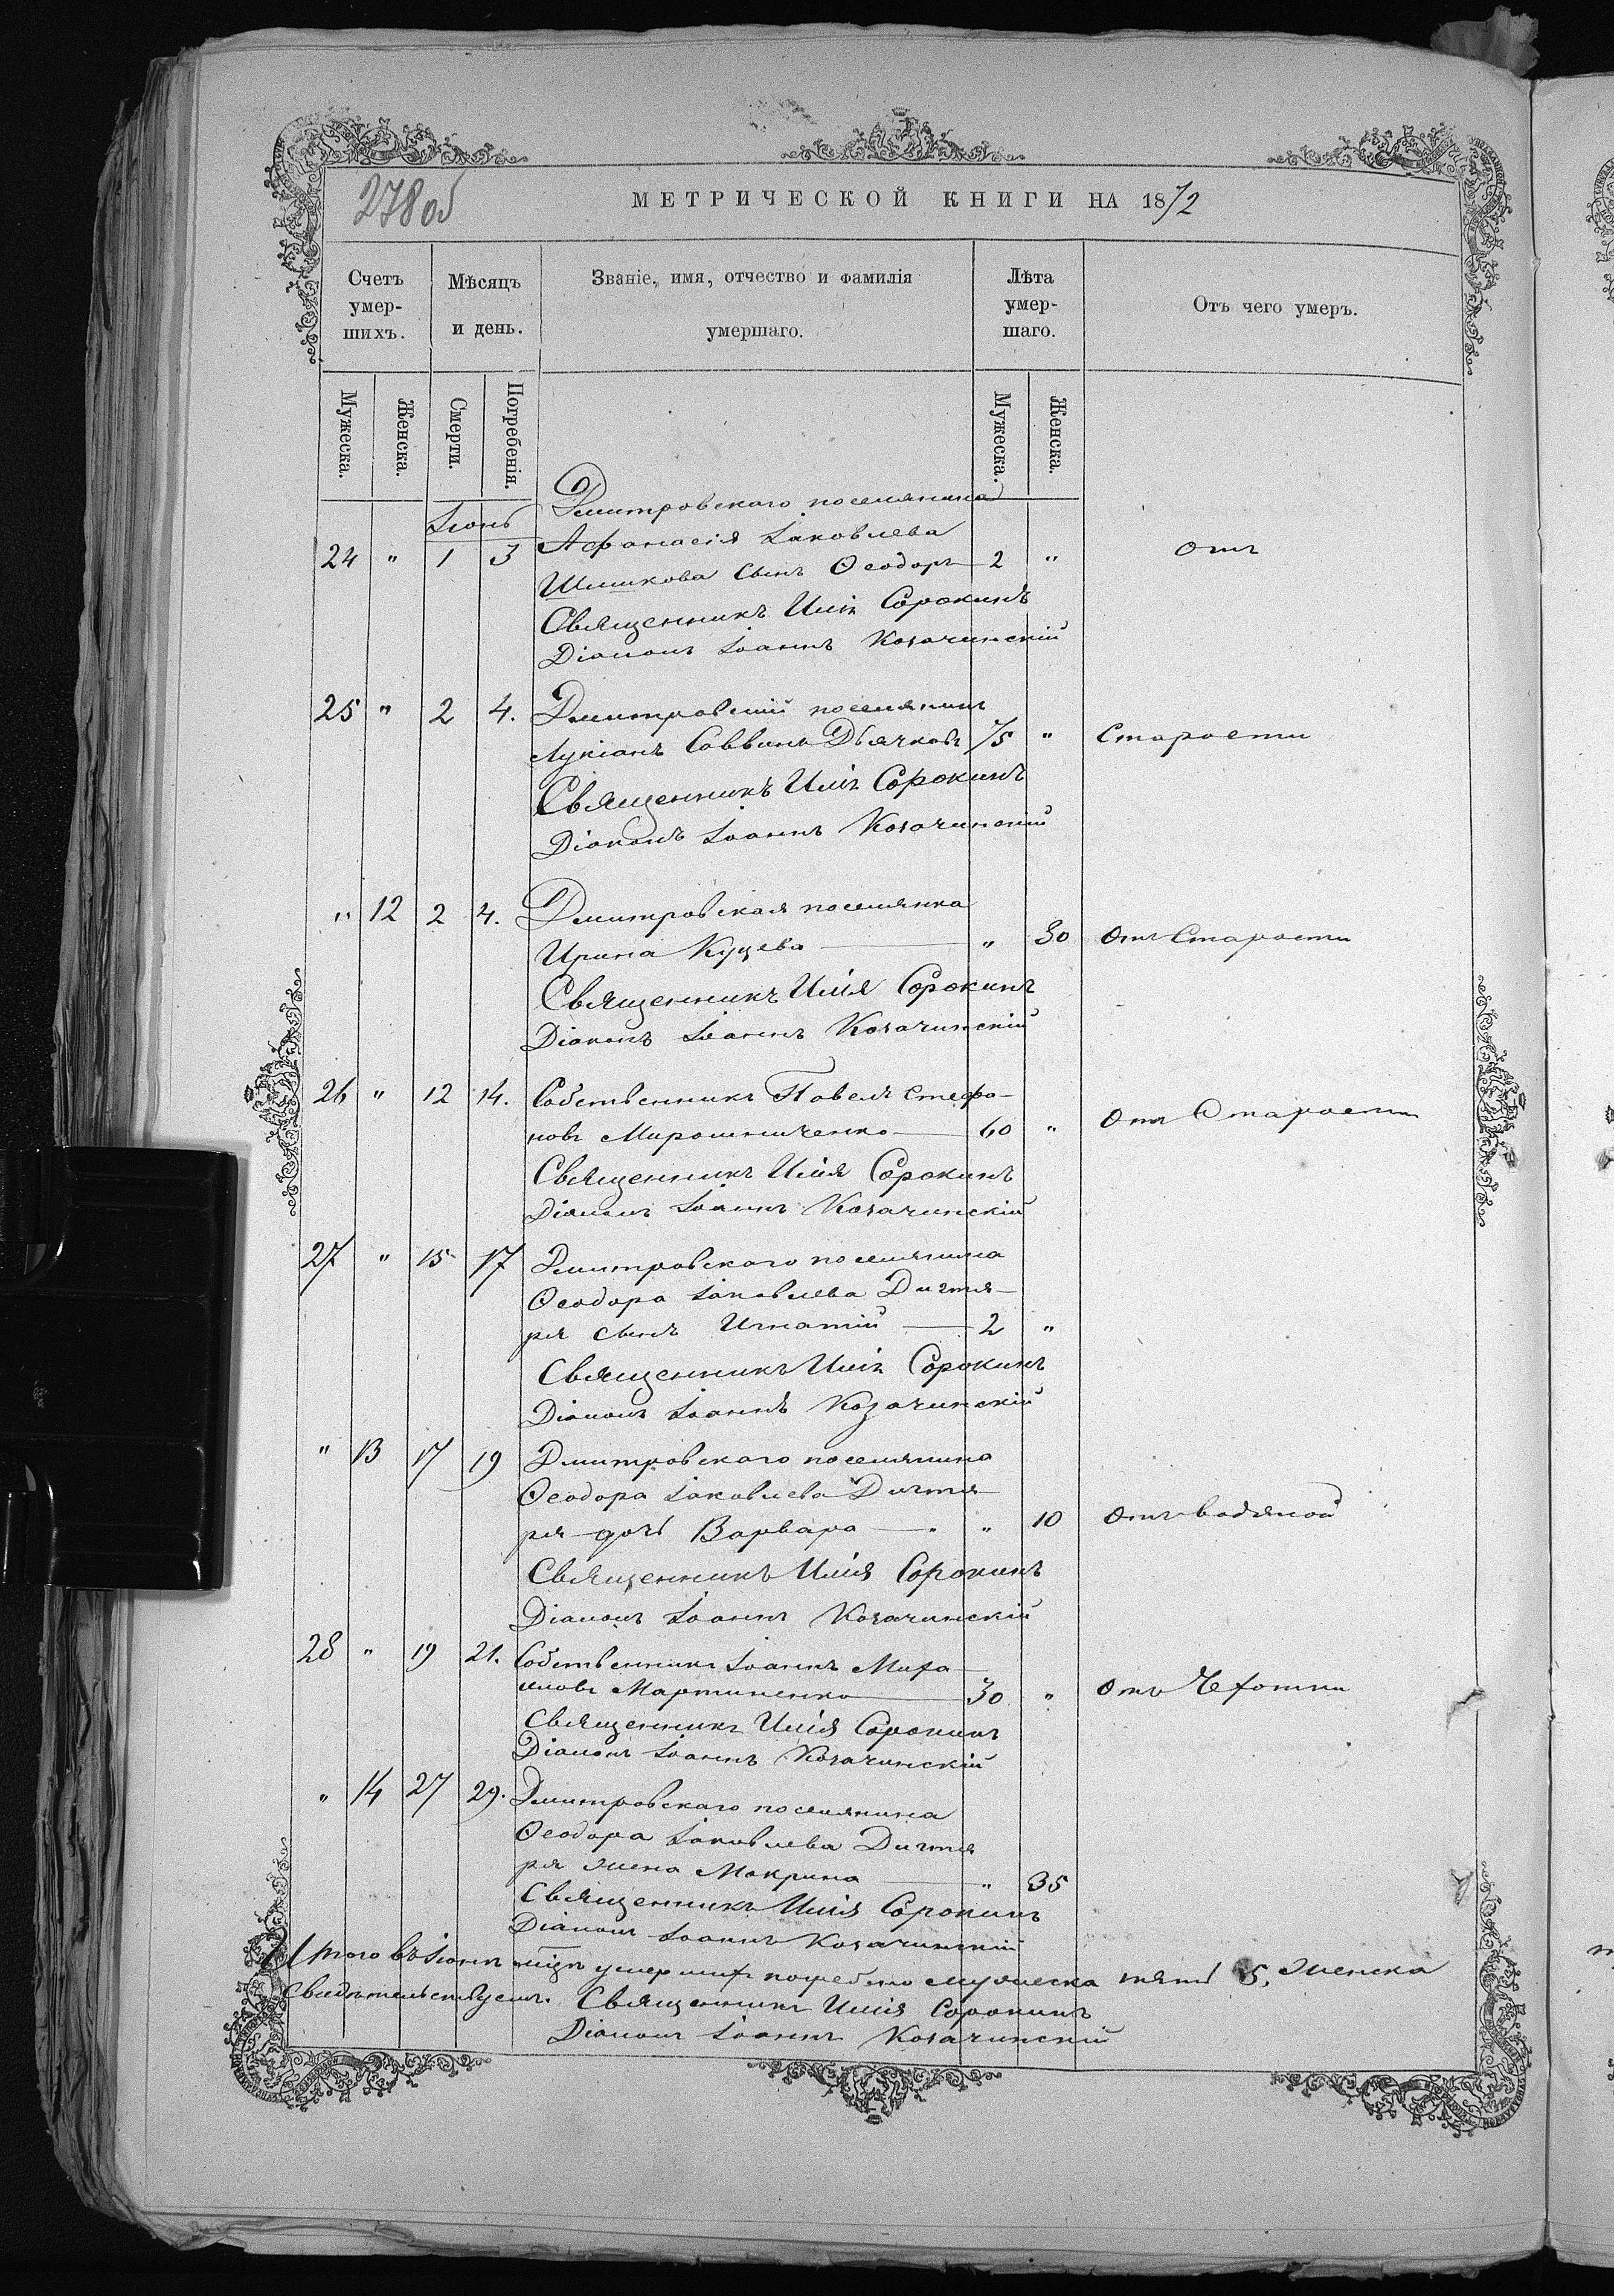 278 об
МЕТРИЧЕСКОЙ КНИГИ НА 1872
Счетъ умер-шихъ.
Мѣсяцъ и день.
Званіе, имя, отчество и фамилія умершаго.
Лѣта умер-шаго.
Отъ чего умеръ.
Мужеска.
Женска.
Смерти.
Погребенія.
Мужеска.
Женска.
Іюнь
Дмитровскаго поселянина
24 " 1 3 Афанасія Іаковлева
Шишкова сынъ Ѳеодоръ 2 " Отъ
Священникъ Илія Сорокинъ
Діаконъ Іоаннъ Козачинскій
25 " 2 4. Дмитровскій поселянинъ
Лукіанъ Саввинъ Дьячковъ 75 " Старости
Священникъ Илія Сорокинъ
Діаконъ Іоаннъ Козачинскій
" 12 2 4. Дмитровская поселянка
Ирина Куцева " 80 Отъ Старости
Священникъ Илія Сорокинъ
Діаконъ Іоаннъ Козачинскій
26 " 12 14. Собственникъ Павелъ Стефа-
новъ Мирошниченко 60 " Отъ Старости
Священникъ Илія Сорокинъ
Діаконъ Іоаннъ Козачинскій
27 " 15 17 Дмитровскаго поселянина
Ѳеодора Іаковлева Дигтя-
ря сынъ Игнатій 2 "
Священникъ Илія Сорокинъ
Діаконъ Іоаннъ Козачинскій
" 13 17 19 Дмитровскаго поселянина
Ѳеодора Іаковлева Дигтя-
ря дочь Варвара " 10 Отъ водяной
Священникъ Илія Сорокинъ
Діаконъ Іоаннъ Козачинскій
28 " 19 21. Собственникъ Іоаннъ Миха-
иловъ Мартиненко 30 " Отъ Чехотки
Священникъ Илія Сорокинъ
Діаконъ Іоаннъ Козачинскій
" 14 27 29. Дмитровскаго поселянина
Ѳеодора Іаковлева Дигтя
ря жена Макрина " 35
Священникъ Илія Сорокинъ
Діаконъ Іоаннъ Козачинскій
Итого въ Іюнѣ мцѣ умершихъ погребено мужеска пять 5, Женска
Свидѣтельствуемъ. Священникъ Илія Сорокинъ
Діаконъ Іоаннъ Козачинскій